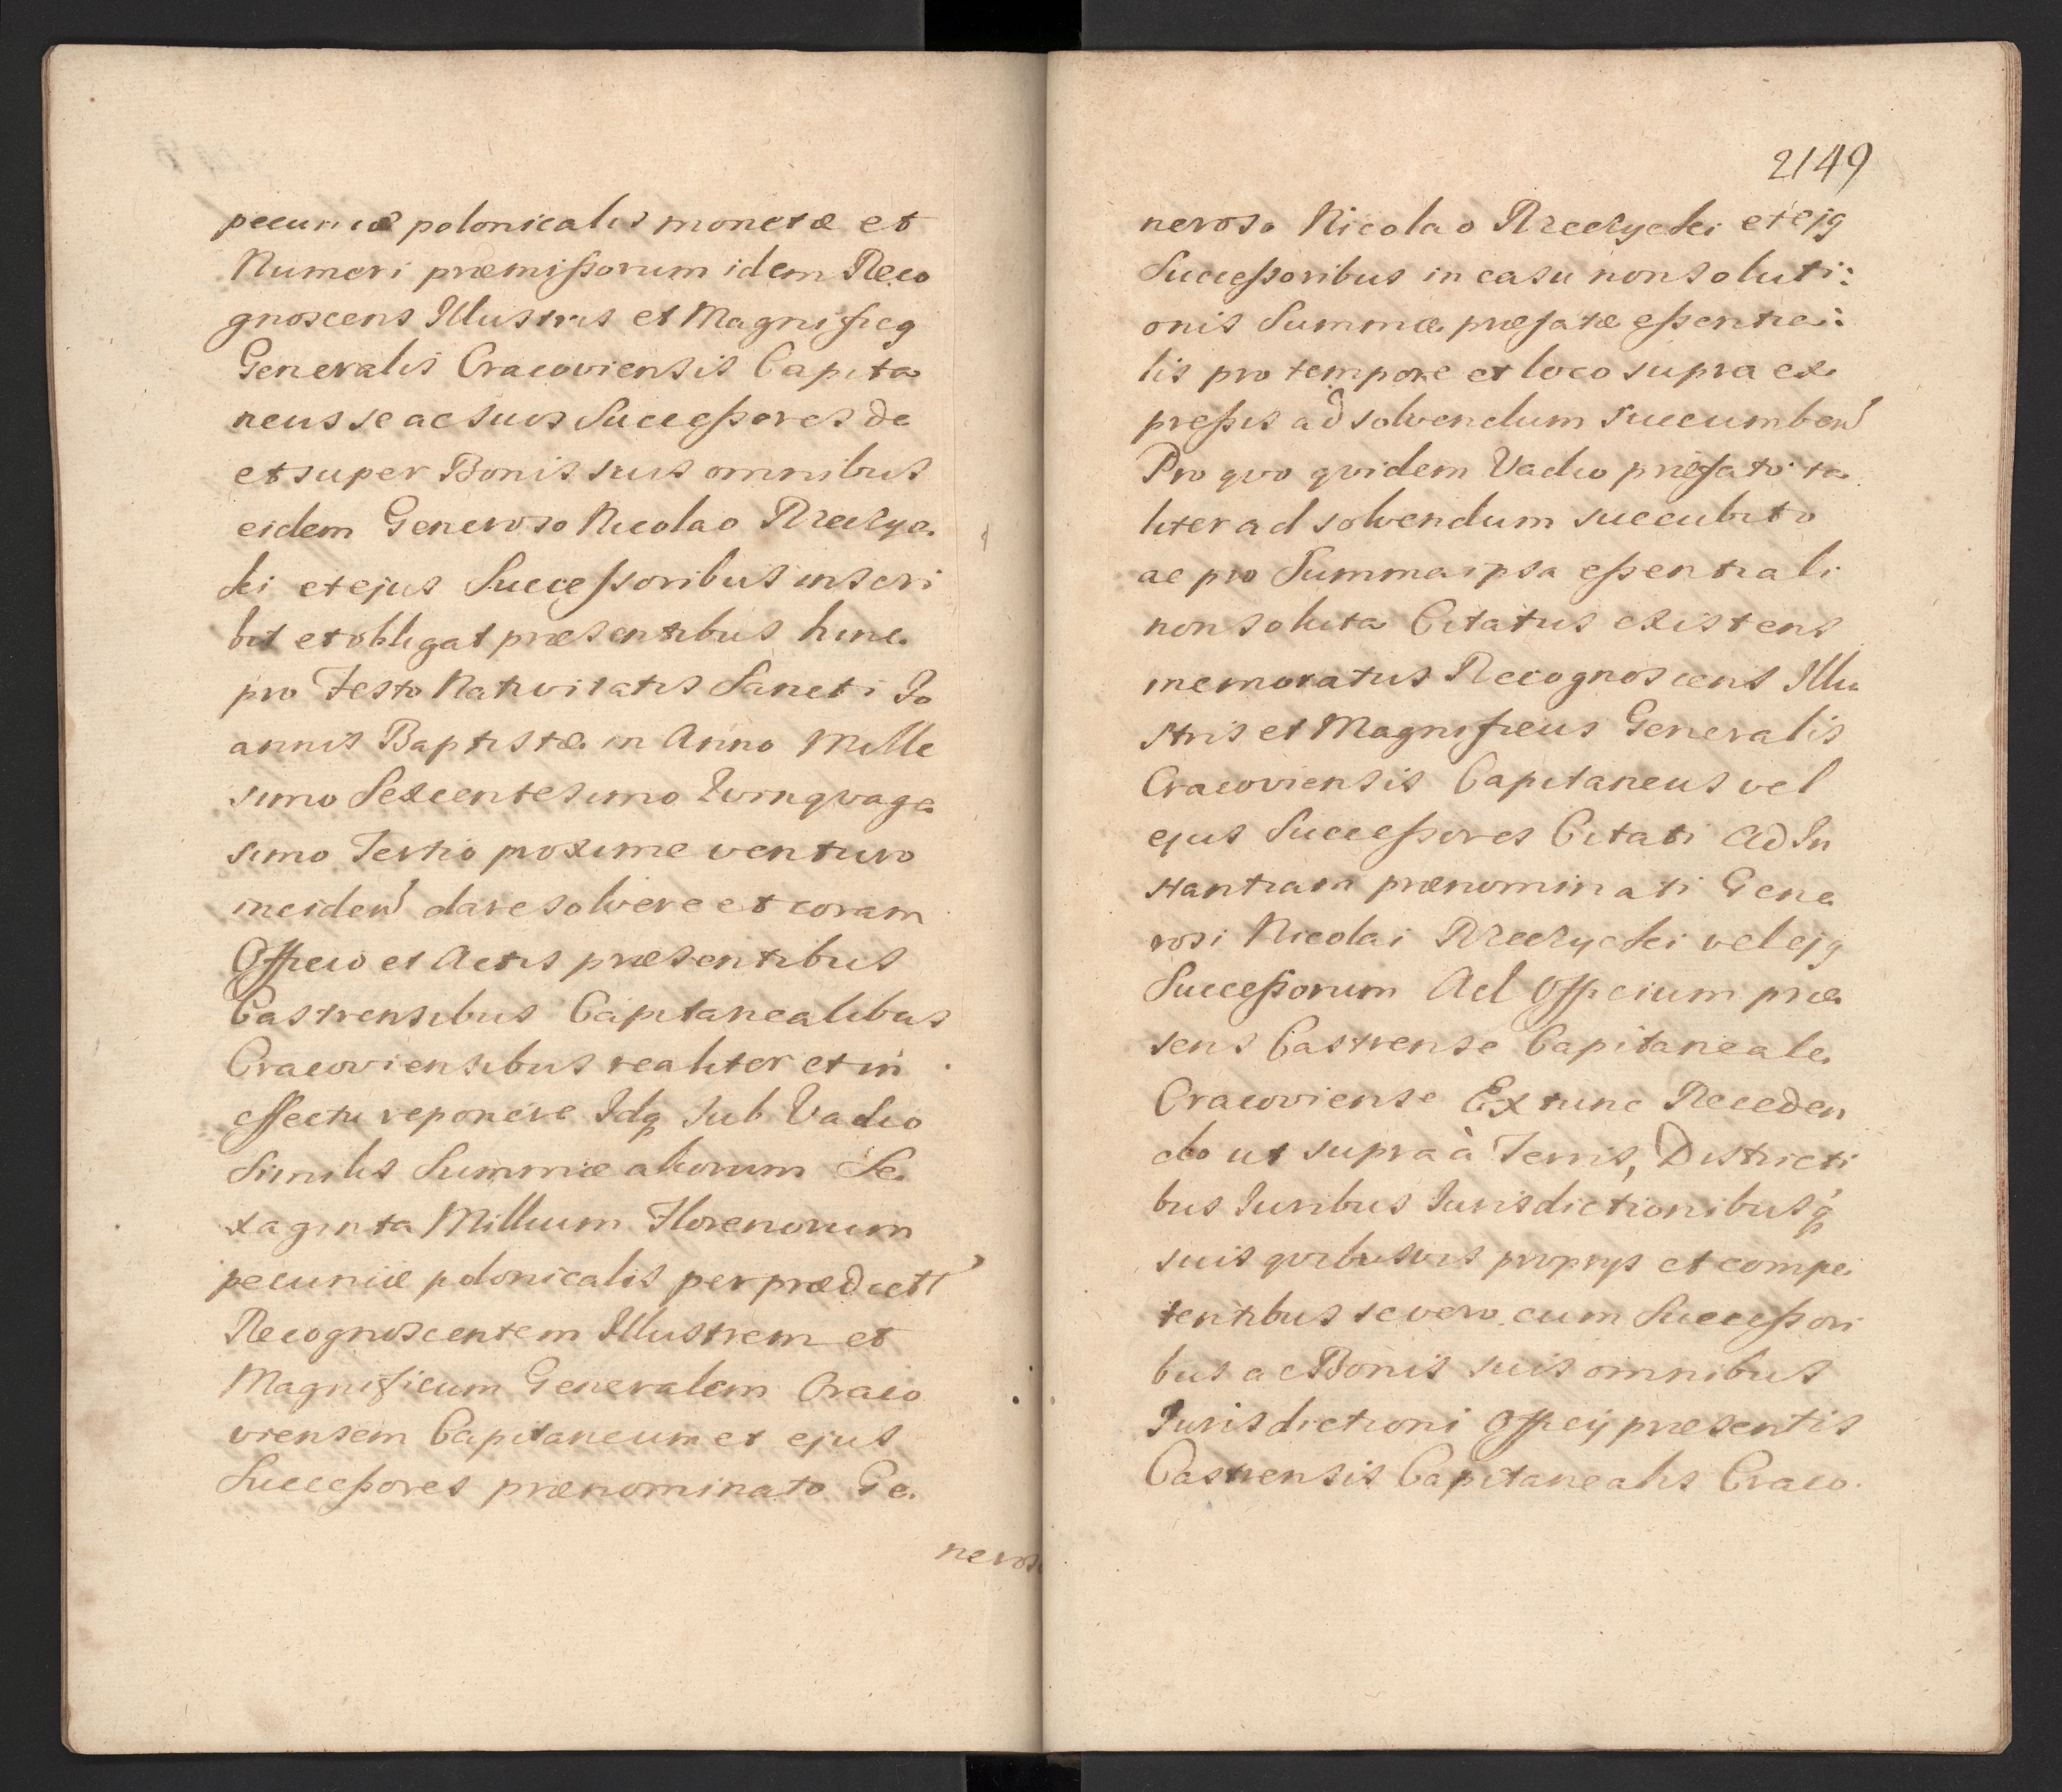 pecuniæ polonicalis monetæ et
Numeri præmißorum idem Reco
gnoscens Illustris et Magnificq
Generalis Cracoviensis Capita
neus se ac suos Succeßores de
et super Bonis suis omnibus
eidem Generoso Nicolao Rzeczyc
ki et ejus Successoribus inscri
bit et obligat præsentibus hinc
pro Festo Nativitatis Sancti Jo
annis Baptistæ in Anno Mille
simo Sexcentesimo Qvinqvage
simo Tertio proxime venturo
inciden dare solvere et coram
Officio et Actis præsentibus
Castrensibus Capitanealibus
Cracoviensibus realiter et in
effectu reponere Idq sub Vadio
Similis Summæ aliorum Se
xaginta Millium Florenorum
pecuniæ polonicalis per prædict
Recognoscentem Illustrem et
Magnificum Generalem Craco
viensem Capitaneum et ejus
Succeßores prænominato Ge
neroso
2149
neroso Nicolao Rzeczycki et ejq
Succeßoribus in casu non soluti:
onis Summæ præfatæ eßentia:
lis pro tempore et loco supra ex
preßis ad solvendum succumben
Pro qvo qvidem Vadio præfato ta
liter ad solvendum succubito
ac pro Summa ipsa eßentiali
non soluta Citatus existens
memoratus Recognoscens Illu
stris et Magnificus Generalis
Cracoviensis Capitaneus vel
ejus Succeßores Citati Ad In
stantiam prænominati Gene
rosi Nicolai Rzeczycki vel ejq
Succeßorum Ad Officium præ
sens Castrense Capitaneale
Cracoviense Ex tunc Receden
do ut supra à Terris, Districti
bus Juribus Jurisdictionibusq
suis qvibusvis proprys et compe
tentibus se vero cum Succeßori
bus ac Bonis suis omnibus
Jurisdictioni Officij præsentis
Castrensis Capitanealis Craco